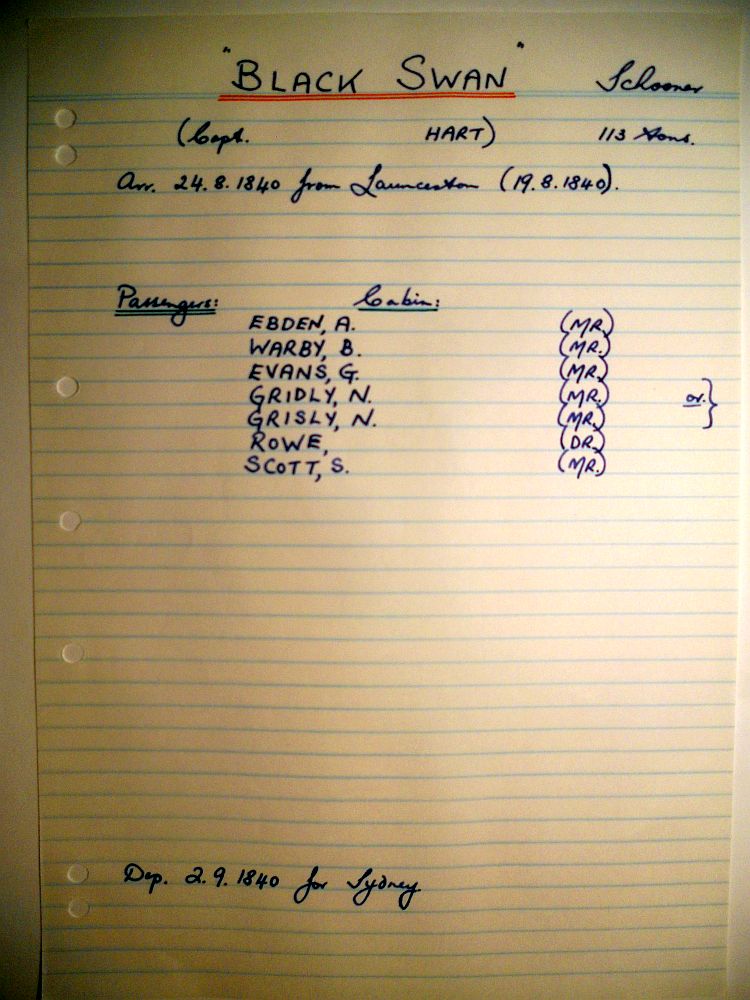 "BLACK SWAN" Schooner
(Capt. HART) 113 tons.
Arr. 24.8.1840 from Launceston (19.8.1840).
Passengers: Cabin:
EBDEN, A. (MR.)
WARBY, B. (MR.)
EVANS, G. (MR.)
GRIDLY, N. (MR.) or. }
GRISLY, N. (MR.)
ROWE, (DR.)
SCOTT, S. (MR.)
Dep. 2.9.1840 for Sydney